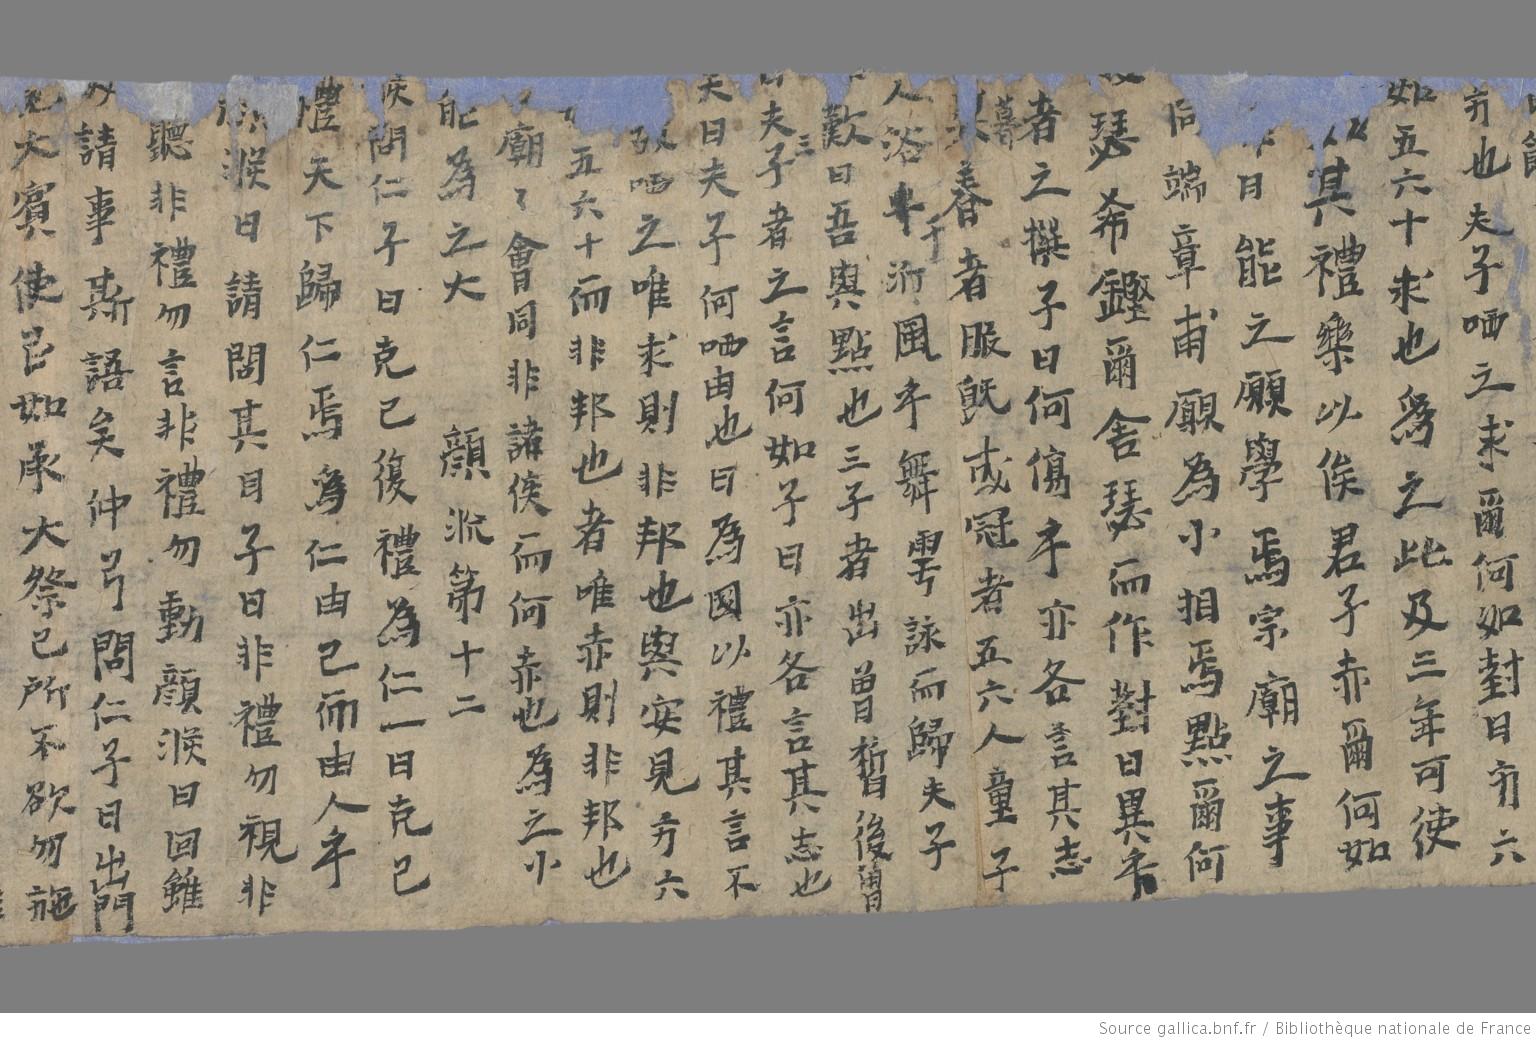 方也夫子哂之求爾何如對曰方六
如五六十求也為之比及三年可使
其禮樂以俟君子赤爾何如
曰能之願學焉宗廟之事
同端章甫願為小相焉點爾何
瑟希鏗爾舍瑟而作對曰異乎
者之撰子曰何傷乎亦各言其志
暮春者服既或冠者五六人童子
人浴乎沂風乎舞雩詠而歸夫子
歎曰吾與點也三子者出曾晳後曾
夫三子者之言何如子曰亦各言其志也
夫曰夫子何哂由也曰為國以禮其言不
哂之唯求則非邦也與安見方六
五六十而非邦也者唯赤則非邦也
廟々會同非諸侯而何赤也為之小
能為之大 顏淵第十二
問仁子曰克己復禮為仁一日克己
禮天下歸仁焉為仁由己而由人乎
曰請問其目子曰非禮勿視非
聽非禮勿言非禮勿動顏淵曰回雖
請事斯語矣仲弓問仁子曰出門
見大賓使己如承大祭己所不欲勿施
Source gallica.bnf.fr / Bibliothèque nationale de France